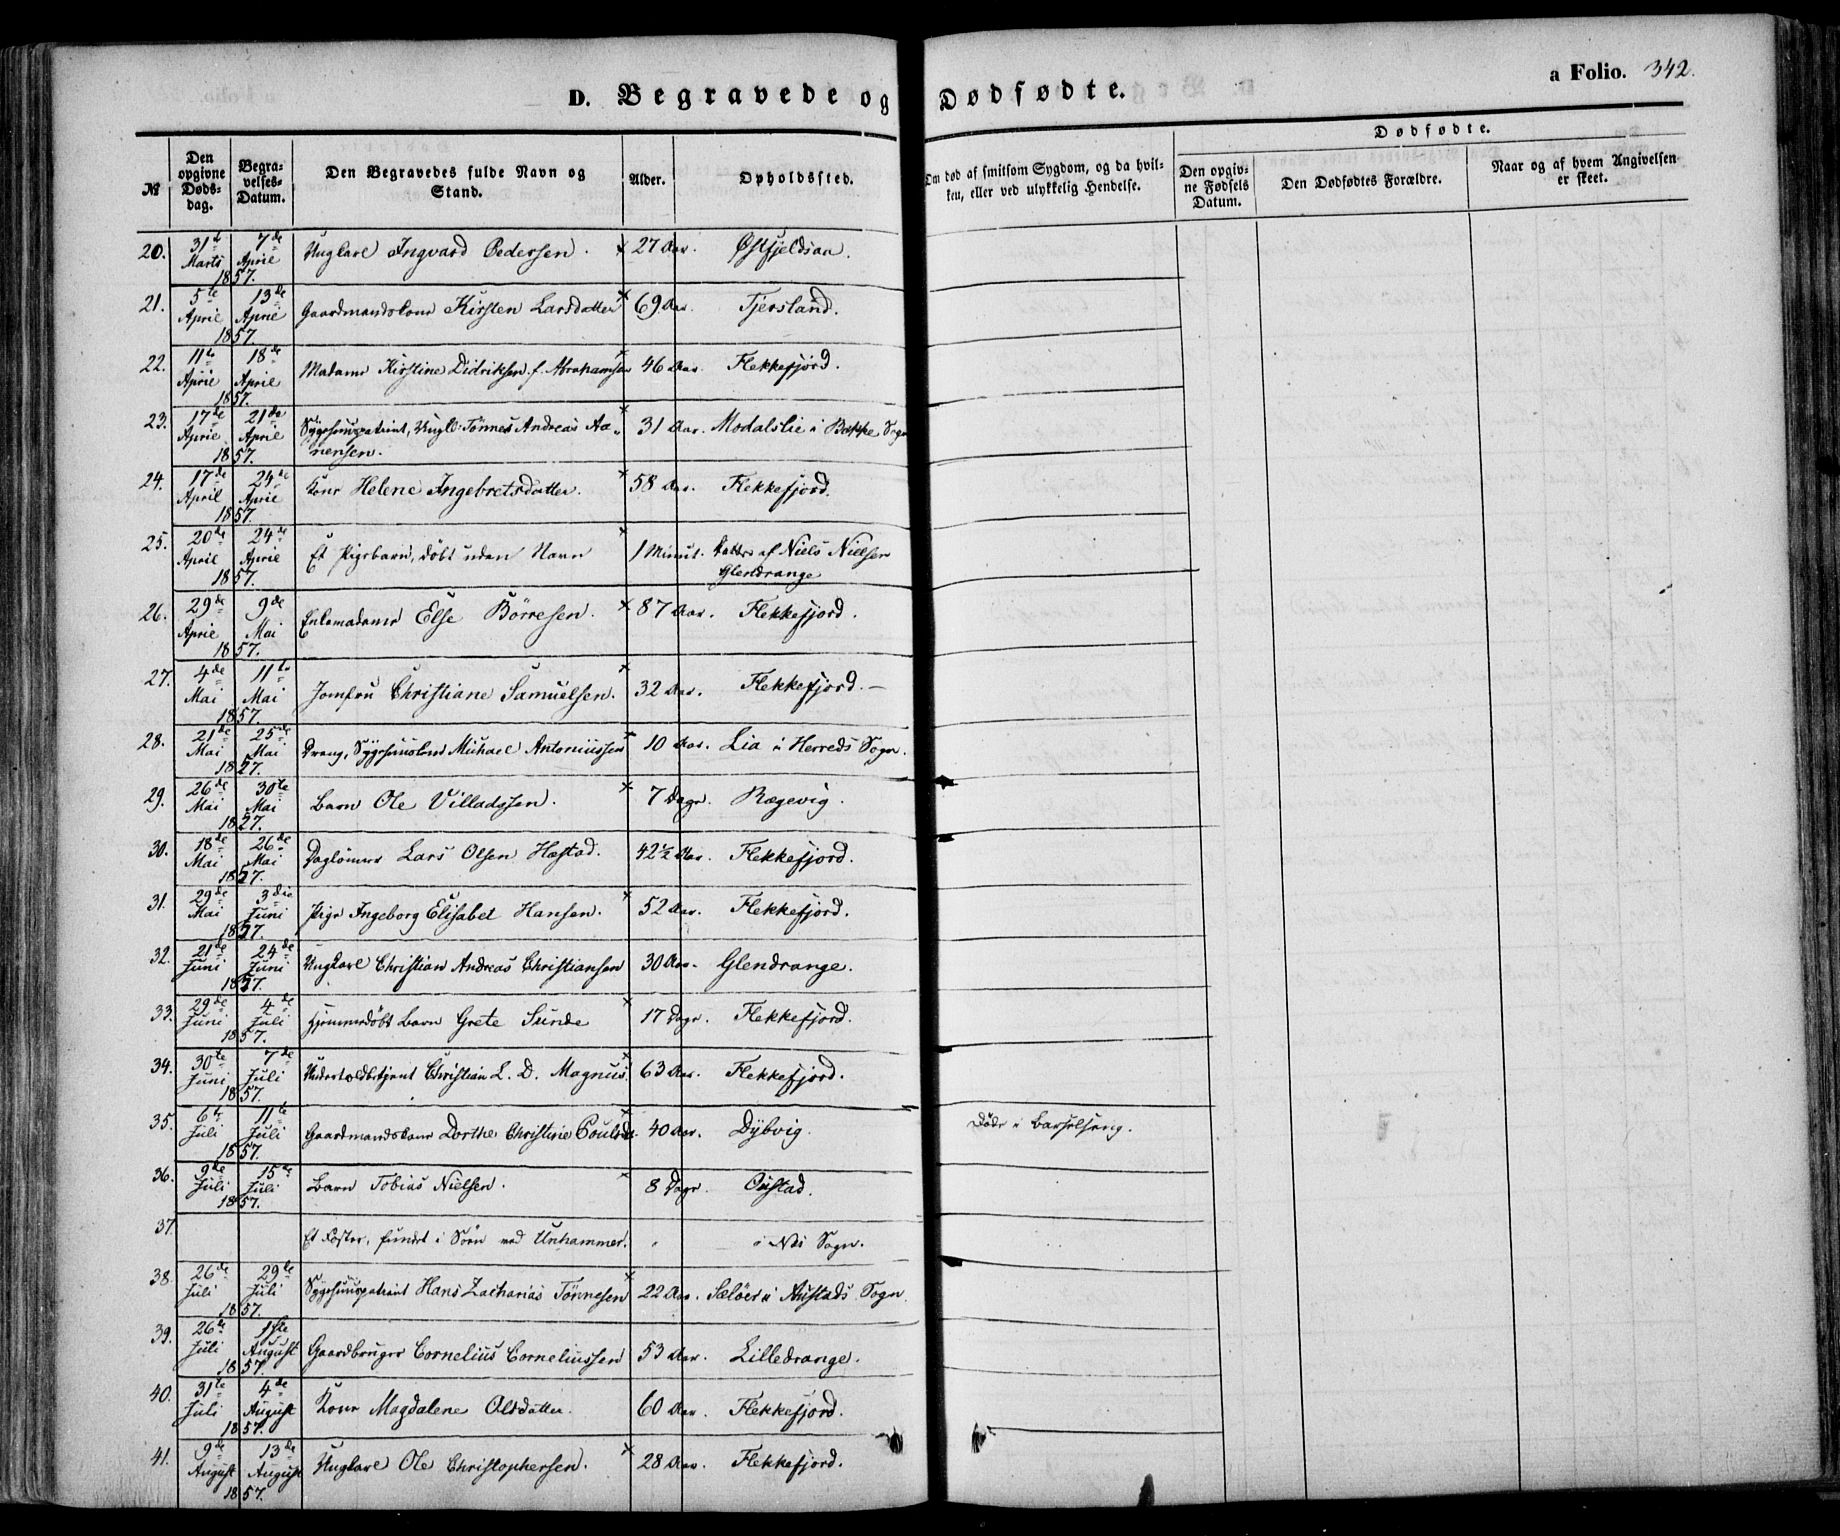 D. Begravede og Dødfødte.
a Folio. 342.
№
Den opgivne Døds-dag.
Begra-velses-Datum.
Den Begravedes fulde Navn og Stand.
Alder.
Opholdssted.
Om død af smitsom Sygdom, og da hvil-ken, eller ved ulykkelig Hendelse.
Dødfødte.
Den opgiv-ne Fødsels Datum.
Den Dødfødtes Forældre.
Naar og af hvem Angivelsen er skeet.
20. 31te Marts 7de April 1857. Ungkarl Ingvard Pedersen. 27 Aar. Østfjeldsaa.
21. 5te April 13de April 1857. Gaardmandskone Kirsten Larsdatter 69 Aar. Tjersland.
22. 11te April 18de April 1857. Madame Kirstine Didriksen f. Abrahamsen 46 Aar. Flekkefjord.
23. 17de April 21de April 1857. Sygehuuspatient, Ungk. Tönnes Andreas Aa-
nensen. 31 Aar. Modalslie i Bakke Sogn
24. 17de April 24de April 1857. Kone Helene Ingebretsdatter. 58 Aar. Flekkefjord.
25. 20de April 24de April 1857. Et Pigebarn, döbt uden Navn 1 Minut. Datter af Niels Nielsen
Glendrange
26. 29de April 9de Mai 1857. Enkemadame Else Börresen. 87 Aar. Flekkefjord.
27. 4de Mai 11te Mai 1857. Jomfru Christiane Samuelsen. 32 Aar. Flekkefjord.
28. 21de Mai 25de Mai 1857. Dreng, Sygehuuslem Michael Antoniussen 10 Aar. Lia i Herreds Sogn.
29. 26de Mai 30te Mai 1857. Barn Ole Villadsen. 7 Dage. Rægevig.
30. 18de Mai 26de Mai 1857. Daglönner Lars Olsen Hæstad. 42½ Aar. Flekkefjord.
31. 29de Mai 3die Juni 1857. Pige Ingeborg Elisabet Hansen. 52 Aar. Flekkefjord.
32. 21de Juni 24de Juni 1857. Ungkarl Christian Andreas Christiansen 30 Aar. Glendrange.
33. 29de Juni 4de Juli 1857. Hjemmedöbt Barn Grete Sunde 17 Dage. Flekkefjord.
34. 30te Juni 7de Juli 1857. Undertoldbetjent Christian L. D. Magnus. 63 Aar. Flekkefjord.
35. 6te Juli 11te Juli 1857. Gaardmandskone Dorthe Christine Poulsd. 40 Aar. Dybvig. Döde i Barselseng.
36. 9de Juli 15de Juli 1857. Barn Tobias Nielsen. 8 Dage. Oustad.
37. Et Foster, fundet i Söen ved Unhammer. i Næs Sogn.
38. 26de Juli 29de Juli 1857. Sygehuuspatient Hans Zacharias Tönnesen 22 Aar. Selöer i Austads Sogn.
39. 26de Juli 1ste August 1857. Gaardbruger Cornelius Corneliussen 53 Aar. Lilledrange.
40. 31te Juli 4de August 1857. Kone Magdalene Olsdatter. 60 Aar. Flekkefjord.
41. 9de August 13de August 1857. Ungkarl Ole Christophersen. 28 Aar. Flekkefjord.